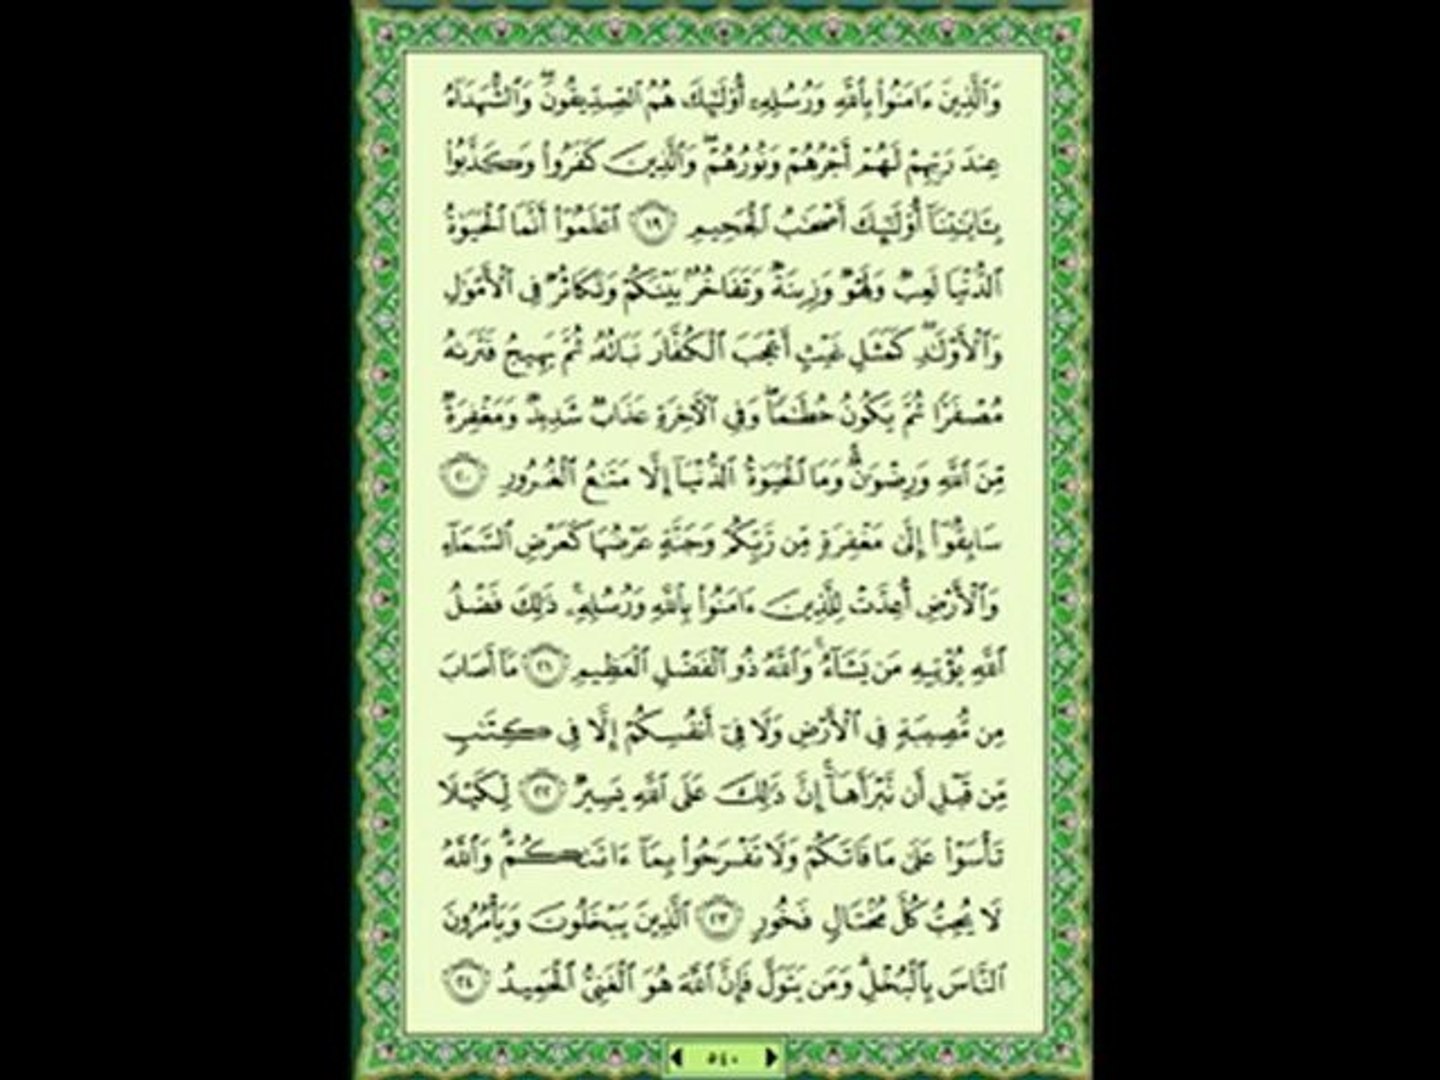 وَٱلَّذِينَ ءَامَنُوا۟ بِٱللَّهِ وَرُسُلِهِۦٓ أُو۟لَٰٓئِكَ هُمُ ٱلصِّدِّيقُونَ ۖ وَٱلشُّهَدَآءُ
عِندَ رَبِّهِمْ لَهُمْ أَجْرُهُمْ وَنُورُهُمْ ۖ وَٱلَّذِينَ كَفَرُوا۟ وَكَذَّبُوا۟
بِـَٔايَٰتِنَآ أُو۟لَٰٓئِكَ أَصْحَٰبُ ٱلْجَحِيمِ ١٩ ٱعْلَمُوٓا۟ أَنَّمَا ٱلْحَيَوٰةُ
ٱلدُّنْيَا لَعِبٌ وَلَهْوٌ وَزِينَةٌ وَتَفَاخُرٌۢ بَيْنَكُمْ وَتَكَاثُرٌ فِى ٱلْأَمْوَٰلِ
وَٱلْأَوْلَٰدِ ۖ كَمَثَلِ غَيْثٍ أَعْجَبَ ٱلْكُفَّارَ نَبَاتُهُۥ ثُمَّ يَهِيجُ فَتَرَىٰهُ
مُصْفَرًّا ثُمَّ يَكُونُ حُطَٰمًا ۖ وَفِى ٱلْءَاخِرَةِ عَذَابٌ شَدِيدٌ وَمَغْفِرَةٌ
مِّنَ ٱللَّهِ وَرِضْوَٰنٌ ۚ وَمَا ٱلْحَيَوٰةُ ٱلدُّنْيَآ إِلَّا مَتَٰعُ ٱلْغُرُورِ ٢٠
سَابِقُوٓا۟ إِلَىٰ مَغْفِرَةٍ مِّن رَّبِّكُمْ وَجَنَّةٍ عَرْضُهَا كَعَرْضِ ٱلسَّمَآءِ
وَٱلْأَرْضِ أُعِدَّتْ لِلَّذِينَ ءَامَنُوا۟ بِٱللَّهِ وَرُسُلِهِۦ ۚ ذَٰلِكَ فَضْلُ
ٱللَّهِ يُؤْتِيهِ مَن يَشَآءُ ۚ وَٱللَّهُ ذُو ٱلْفَضْلِ ٱلْعَظِيمِ ٢١ مَآ أَصَابَ
مِن مُّصِيبَةٍ فِى ٱلْأَرْضِ وَلَا فِىٓ أَنفُسِكُمْ إِلَّا فِى كِتَٰبٍ
مِّن قَبْلِ أَن نَّبْرَأَهَآ ۚ إِنَّ ذَٰلِكَ عَلَى ٱللَّهِ يَسِيرٌ ٢٢ لِّكَيْلَا
تَأْسَوْا۟ عَلَىٰ مَا فَاتَكُمْ وَلَا تَفْرَحُوا۟ بِمَآ ءَاتَىٰكُمْ ۗ وَٱللَّهُ
لَا يُحِبُّ كُلَّ مُخْتَالٍ فَخُورٍ ٢٣ ٱلَّذِينَ يَبْخَلُونَ وَيَأْمُرُونَ
ٱلنَّاسَ بِٱلْبُخْلِ ۗ وَمَن يَتَوَلَّ فَإِنَّ ٱللَّهَ هُوَ ٱلْغَنِىُّ ٱلْحَمِيدُ ٢٤
٥٤٠